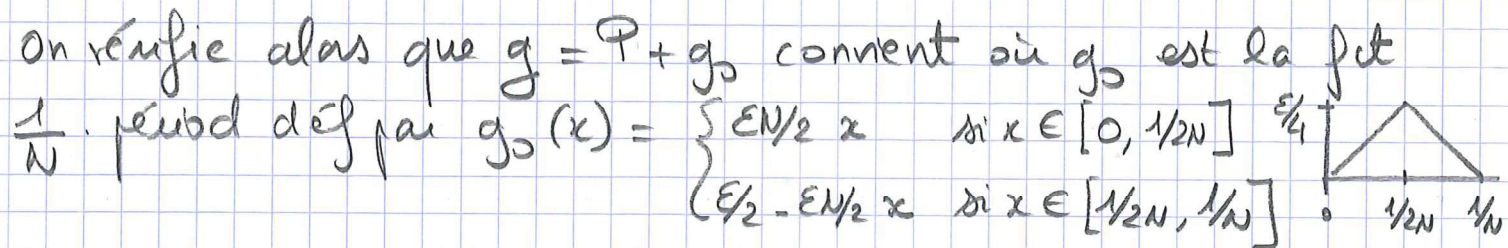 On vérifie alors que g = P + g₀ convient où g₀ est la fct
1/N . périod déf par g₀(x) = { εN/2 x si x ∈ [0, 1/2N] ε/4
ε/2 - εN/2 x si x ∈ [1/2N, 1/N] 0 1/2N 1/N